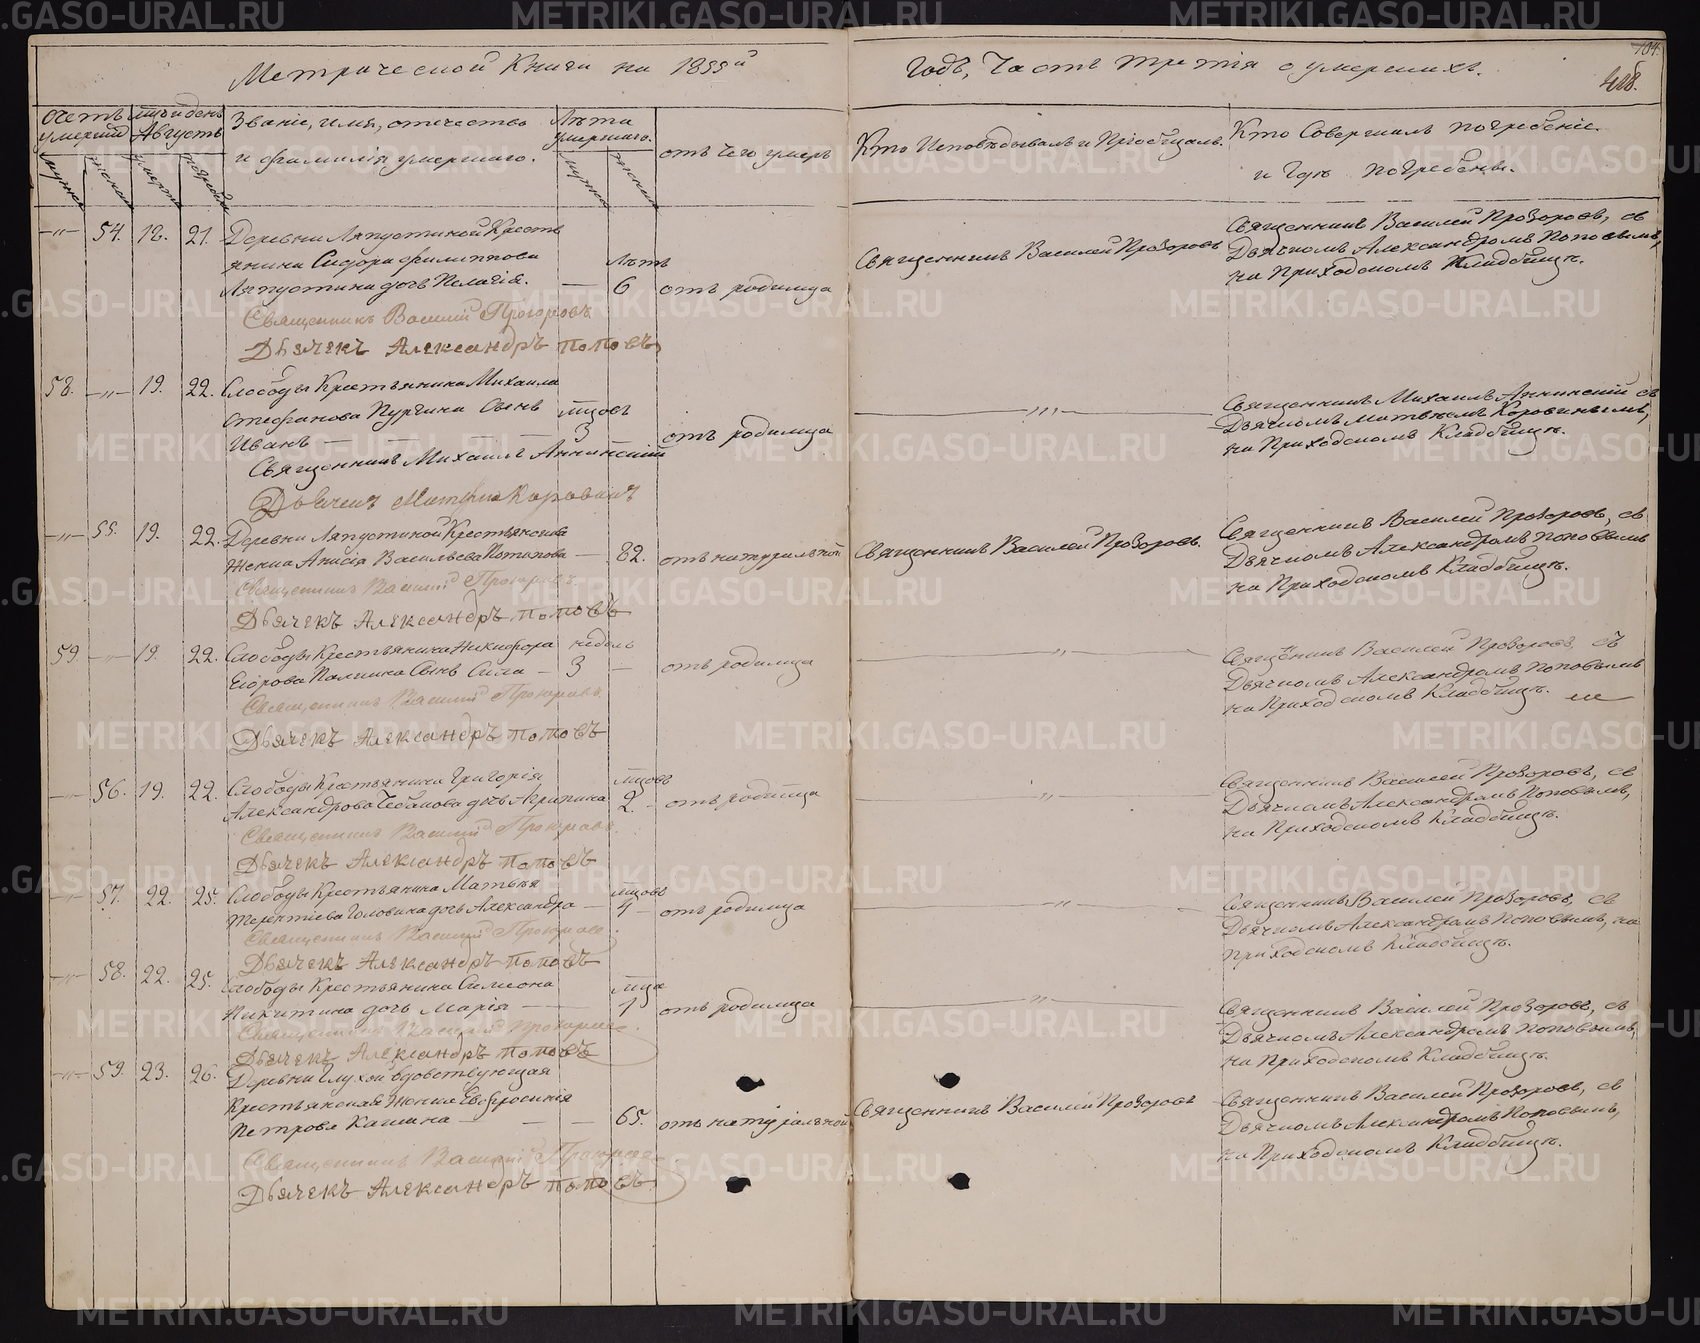 Метрической Книги на 1855й
Годъ, Часть третія о умершихъ.
104
Счетъ умерших
Мцъ и день Августъ
Званіе, имя, отчество и фамилія умершаго.
Лѣта умершаго.
отъ чего умеръ
Кто Исповѣдывалъ и Пріобщалъ.
Кто Совершалъ погребеніе и Гдѣ погребены.
мужска
женска
смерти
погребен
мужска
женска
—"— 54. 18. 21. Деревни Ляпустиной Кресть
янина Сидора Филиппова лѣтъ
Ляпустина дочь Пелагія. — 6 отъ родимца
Священникъ Василей Прозоровъ
Священникъ Василей Прозоровъ, съ
Дьячкомъ Александромъ Поповымъ,
на Приходскомъ Кладбищѣ.
Священникъ Василій Прозоровъ
Дьячекъ Александръ Поповъ
58. —"— 19. 22. Слободы Крестьянина Михаила
Стефанова Пургина Сынъ мцовъ
Иванъ — 3 отъ родимца
Священникъ Михаилъ Аннинскій съ
Дьячкомъ Матвѣемъ Коровинымъ,
на Приходскомъ Кладбищѣ.
Священникъ Михаилъ Аннинскій
Дьячекъ Матфей Коровинъ
—"— 55. 19. 22. Деревни Ляпустиной Крестьянская
Женка Анисія Васильева Потапова — 82. отъ натуральной
Священникъ Василей Прозоровъ.
Священникъ Василей Прозоровъ, съ
Дьячкомъ Александромъ Поповымъ
на Приходскомъ Кладбищѣ.
Священникъ Василій Прозоровъ
Дьячекъ Александръ Поповъ
59. —"— 19. 22. Слободы Крестьянина Никифора недель
Егорова Палкина Сынъ Сила — 3 — отъ родимца
Священникъ Василей Прозоровъ, съ
Дьячкомъ Александромъ Поповымъ
на Приходскомъ Кладбищѣ.
Священникъ Василій Прозоровъ
Дьячекъ Александръ Поповъ
— 56. 19. 22. Слободы Крестьянина Григорія мцовъ
Александрова Чебакова дочь Агрипина 2. — отъ родимца
Священникъ Василей Прозоровъ, съ
Дьячкомъ Александромъ Поповымъ,
на Приходскомъ Кладбищѣ.
Священникъ Василій Прозоровъ.
Дьячекъ Александръ Поповъ
—"— 57. 22. 25. Слободы Крестьянина Матвѣя мцовъ
Терентіева Головина дочь Александра — 4 — отъ родимца
Священникъ Василей Прозоровъ, съ
Дьячкомъ Александромъ Поповымъ, на
Приходскомъ Кладбищѣ.
Священникъ Василій Прозоровъ.
Дьячекъ Александръ Поповъ
—"— 58. 22. 25. Слободы Крестьянина Симиона мцъ
Никитина дочь Марія — 1 отъ родимца
Священникъ Василей Прозоровъ, съ
Дьячкомъ Александромъ Поповымъ,
на Приходскомъ Кладбищѣ.
Священникъ Василій Прозоровъ.
Дьячекъ Александръ Поповъ
—"— 59. 23. 26. Деревни Глухой вдовствующая
Крестьянская Женка Евфросинія
Петрова Кашина — 65. отъ натуральной
Священникъ Василій Прозоровъ
Священникъ Василей Прозоровъ, съ
Дьячкомъ Александромъ Поповымъ,
на Приходскомъ Кладбищѣ.
Священникъ Василій Прозоровъ
Дьячекъ Александръ Поповъ
METRIKI.GASO-URAL.RU